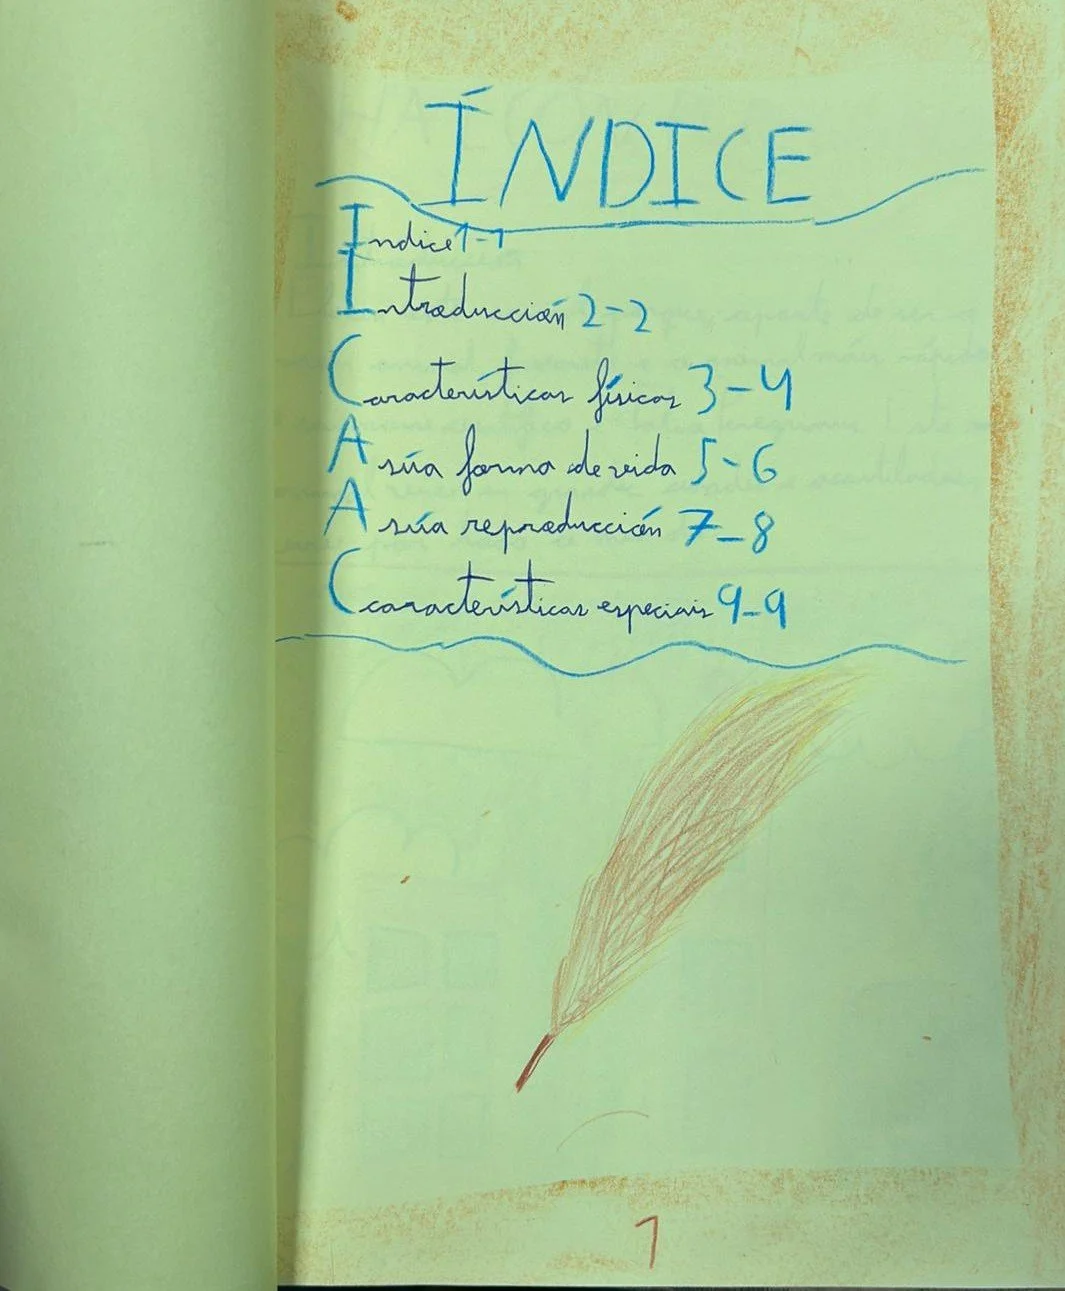 ÍNDICE
Indice 1-1
Introducción 2-2
Características físicas 3-4
A súa forma de vida 5-6
A súa reproducción 7-8
Ccaracterísticas especiais 9-9
1